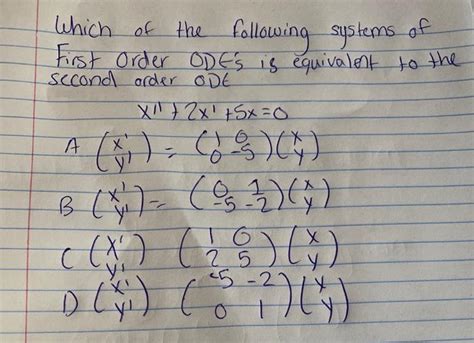 Which of the following systems of
First Order ODE's is equivalent to the
second order ODE
x'' + 2x' + 5x = 0
A (x' y') = (1 0 0 -5)(x y)
B (x' y') = (0 1 -5 -2)(x y)
C (x' y') (1 0 2 5)(x y)
D (x' y') (-5 -2 0 1)(x y)